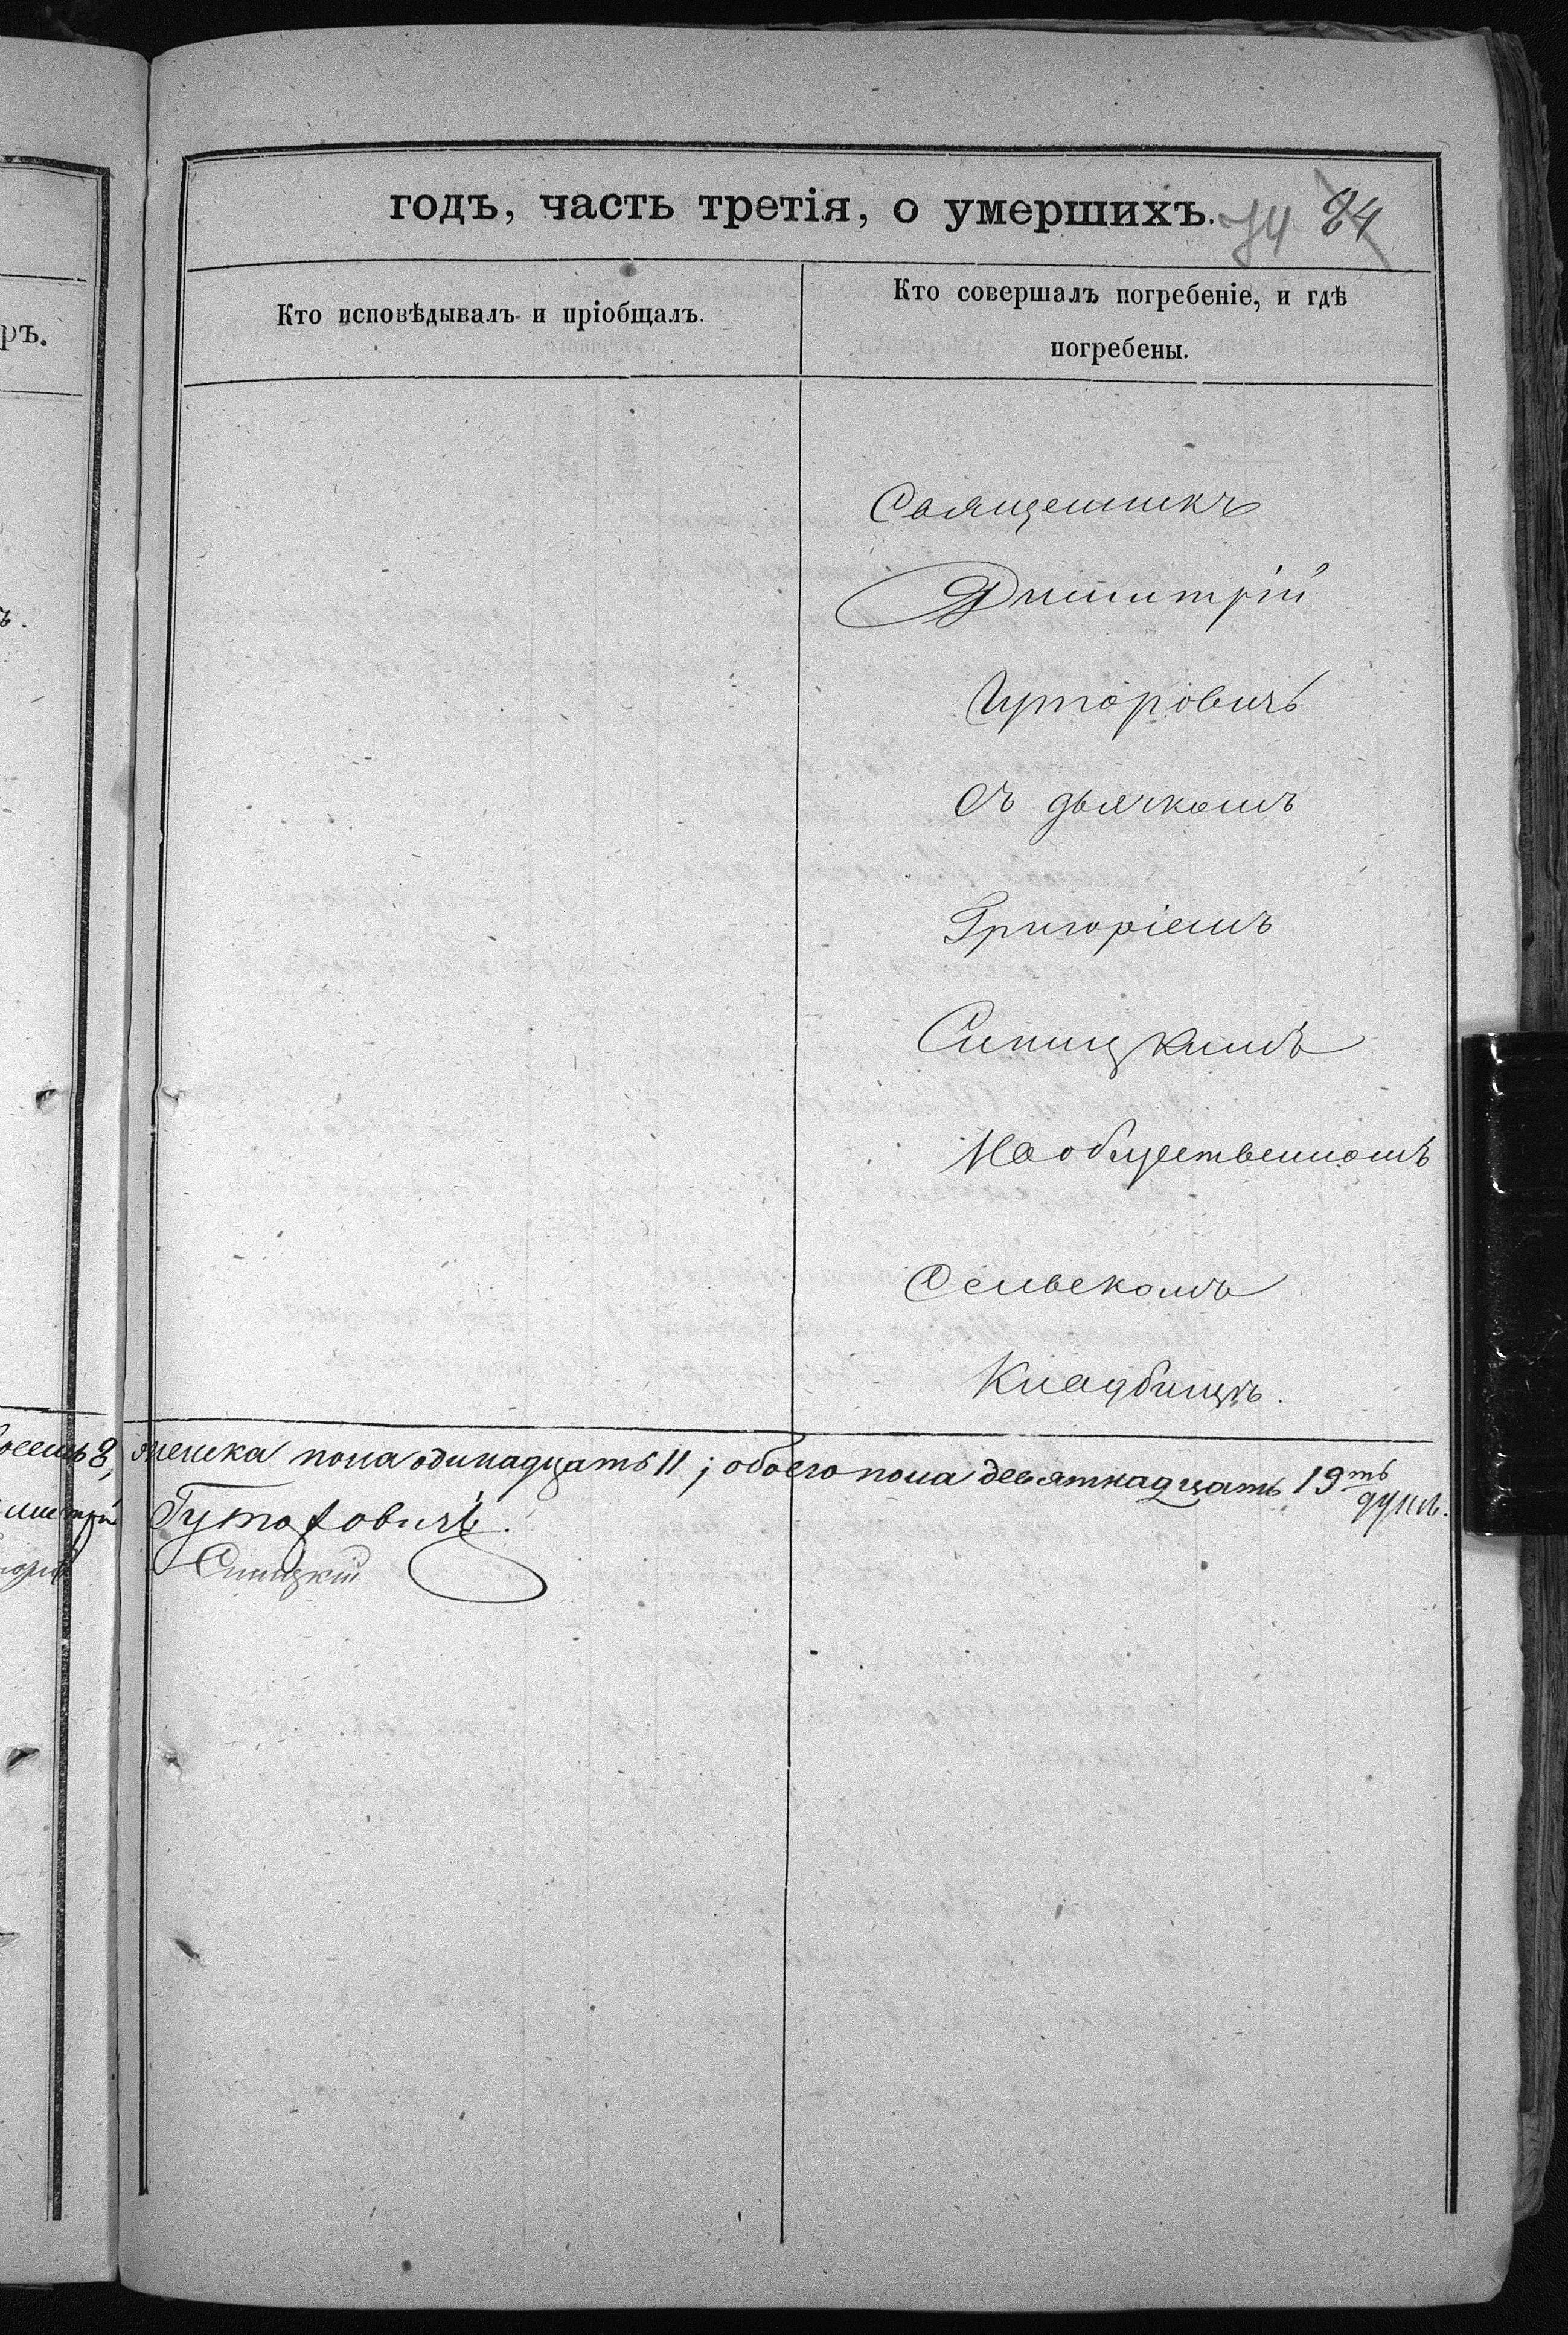 ръ.
ъ.
годъ, часть третія, о умершихъ.
74 84
Кто исповѣдывалъ и пріобщалъ.
Кто совершалъ погребеніе, и гдѣ
погребены.
Священникъ
Димитрій
Гуторовичъ
Съ дьячкомъ
Григоріемъ
Синицкимъ
На общественномъ
Сельскомъ
Кладбищѣ.
восемь 8, женска пола одинадцать 11; обоего пола девятнадцать 19ть
душъ.
Гуторовичъ.
Синицкій